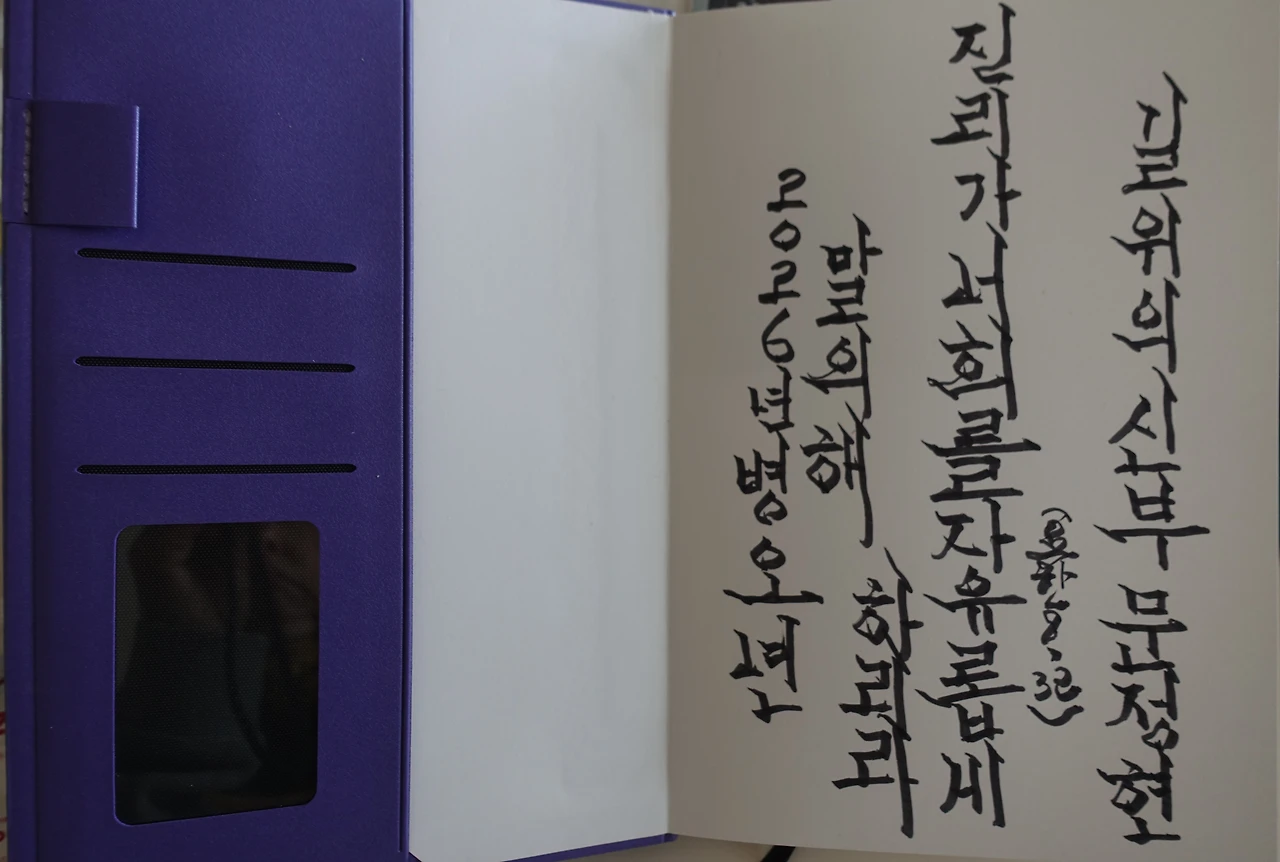 길위의신부 문정현
진리가너희를자유롭게
(요한8、32)
하리라
말의해
2026년병오년